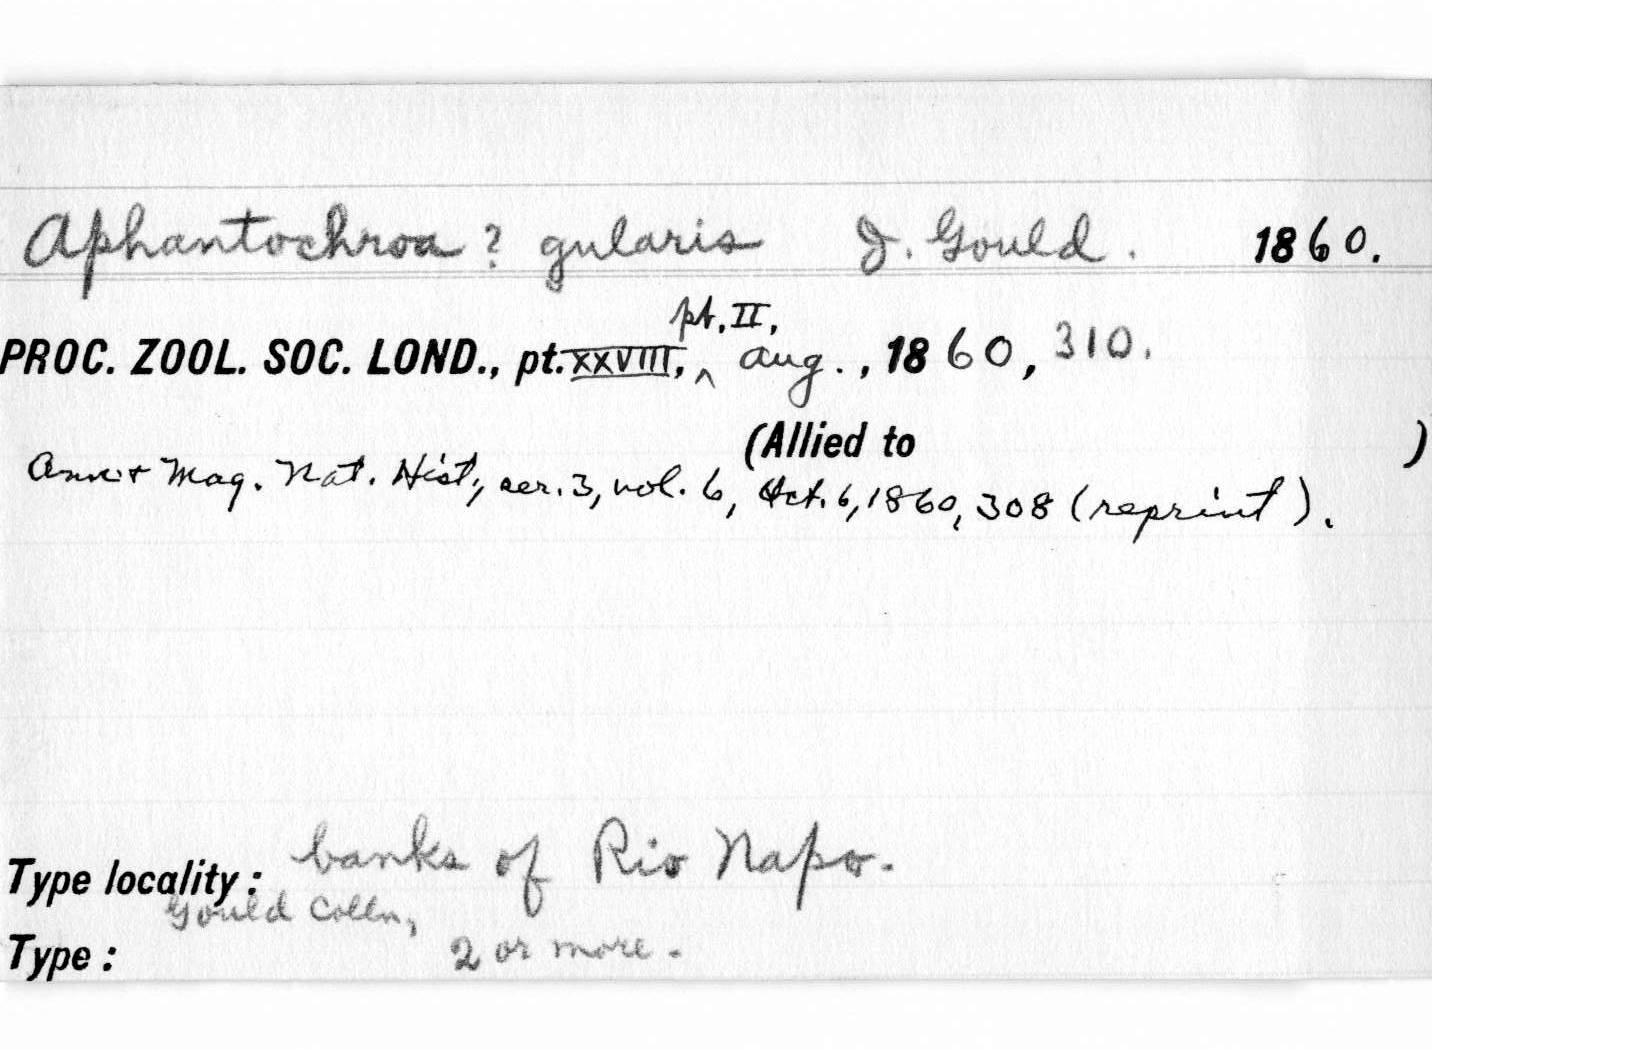 Aphantochroa ? gularis J. Gould. 1860.
pt. II,
PROC. ZOOL. SOC. LOND., pt. XXVIII, ^ Aug. , 1860, 310.
(Allied to )
Ann. + Mag. Nat. Hist., ser. 3, vol. 6, Oct. 6, 1860, 308 (reprint).
Type locality: banks of Rio Napo.
Gould Colln,
Type: 2 or more.